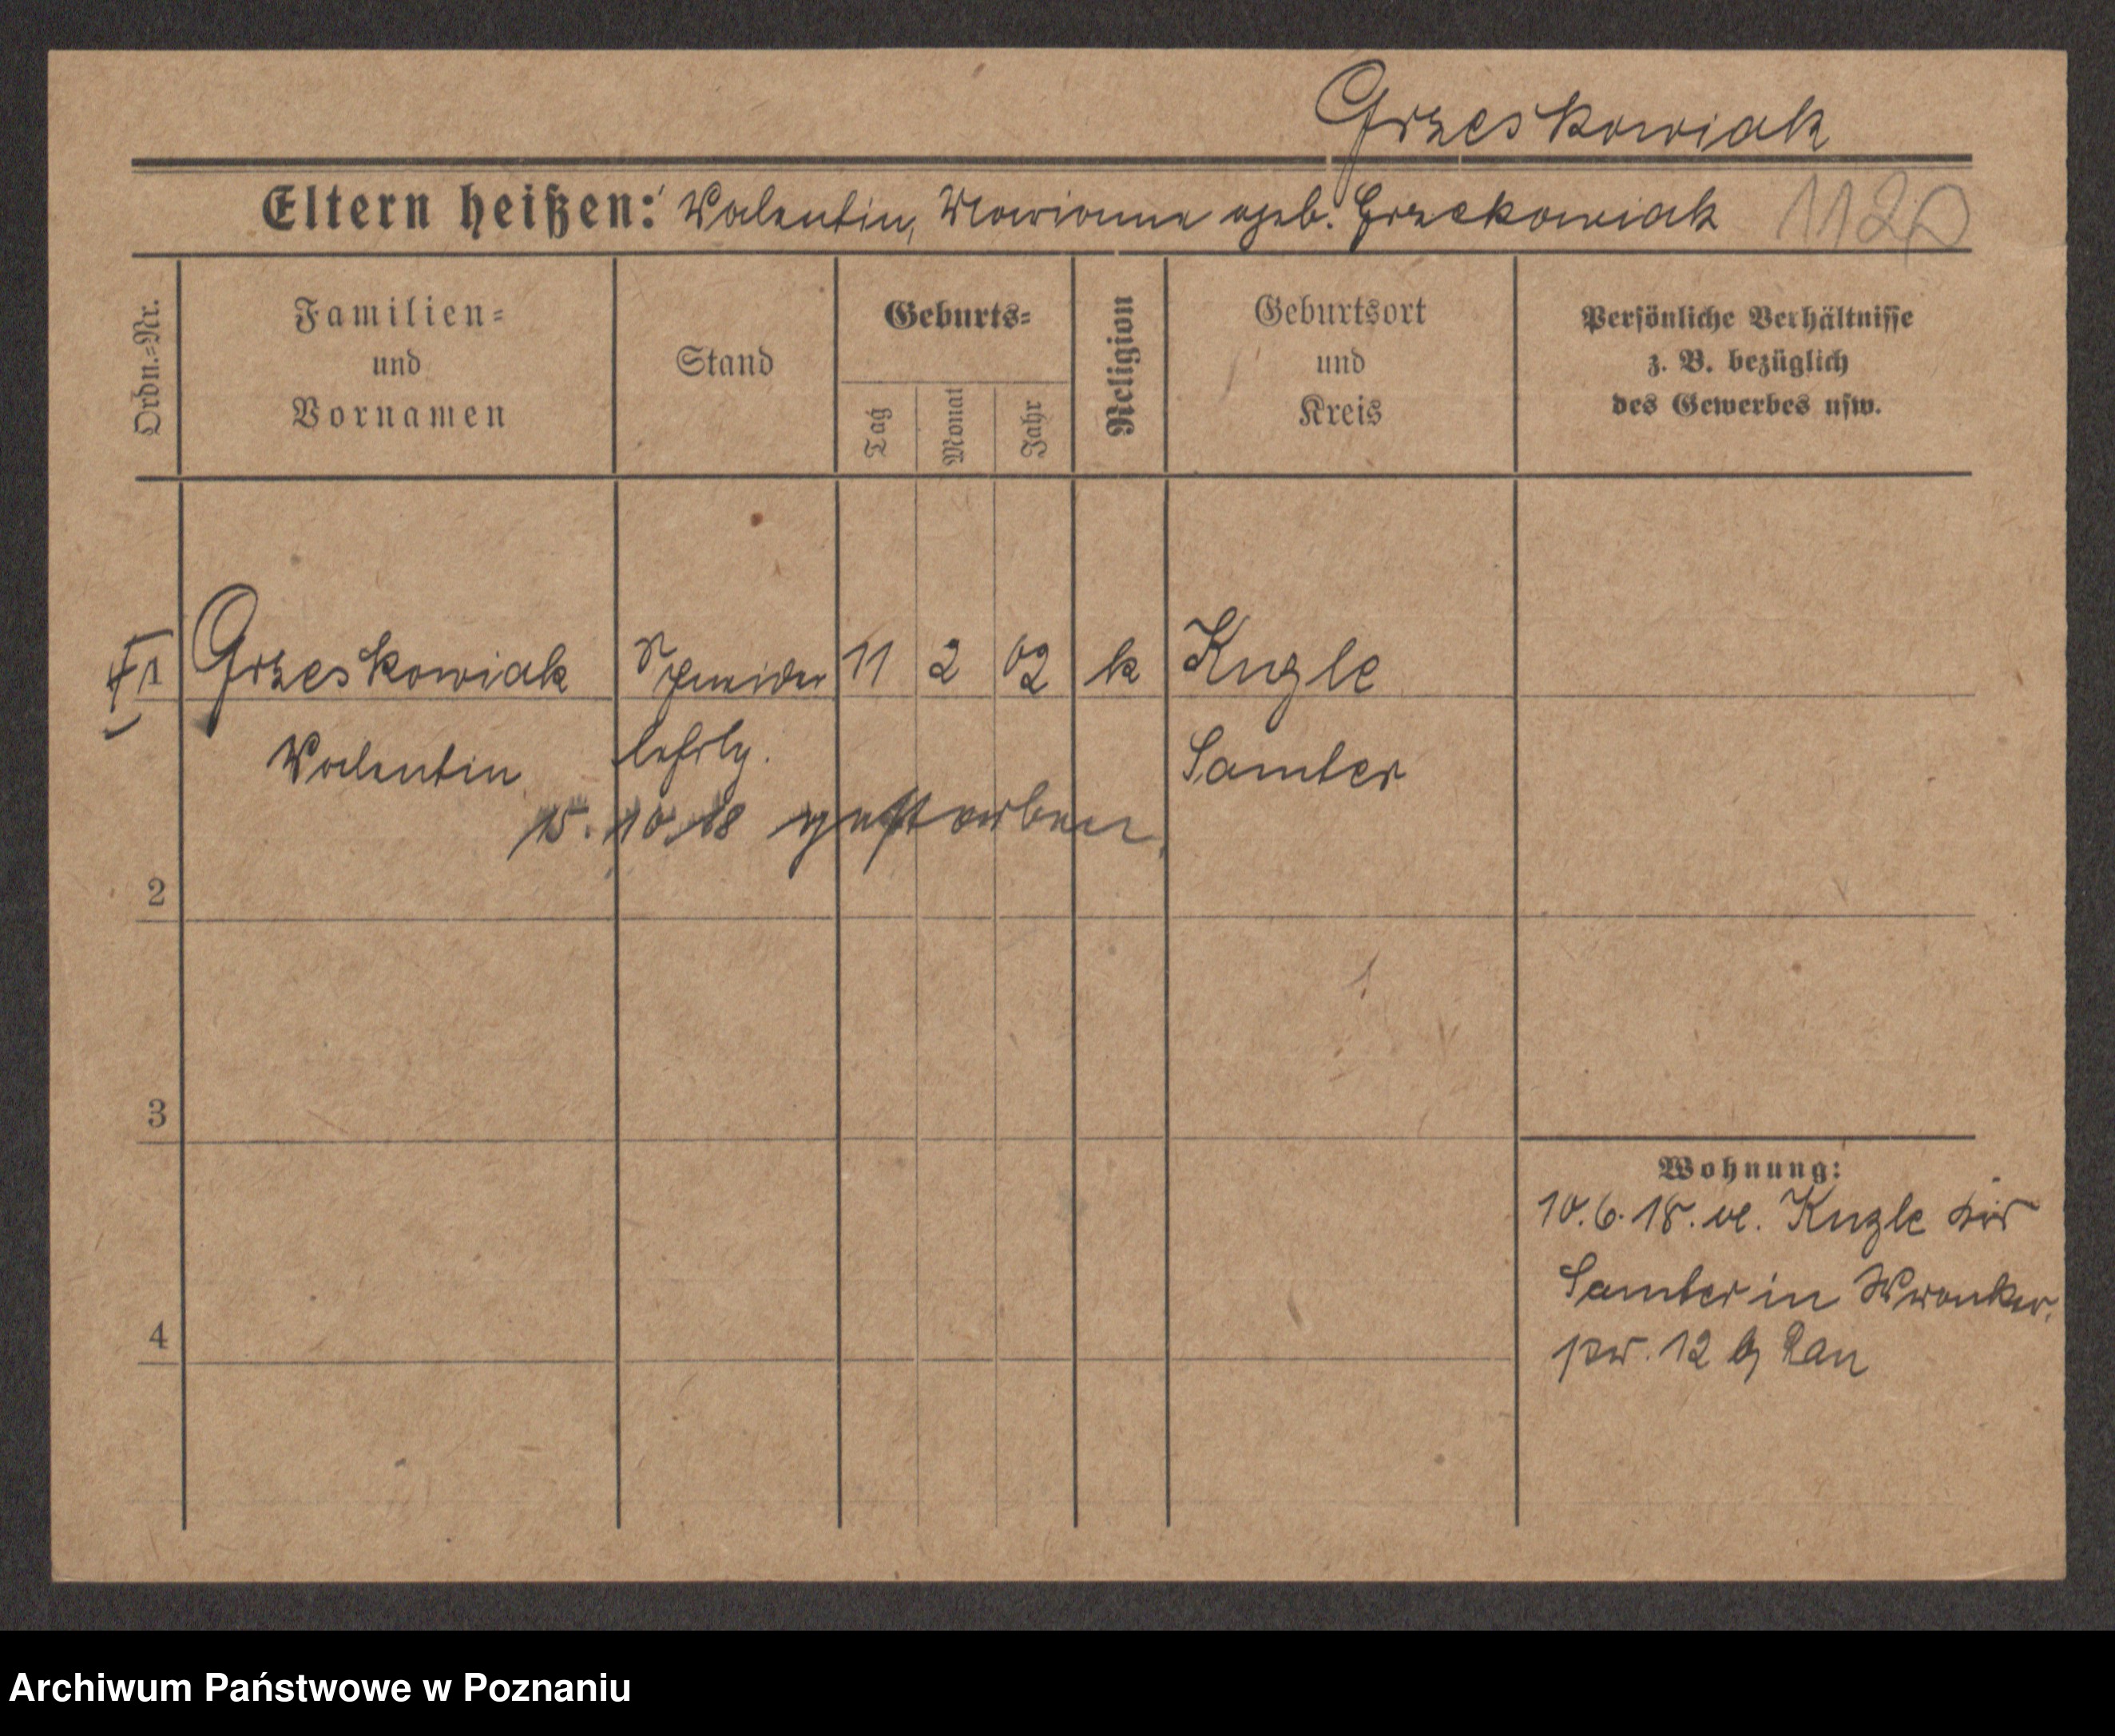 Grzeskowiak
Eltern heißen: Valentin, Marianna geb. Grzekowiak 112
Ordn.-Nr.
Familien-
und
Vornamen
Stand
Geburts-
Tag
Monat
Jahr
Religion
Geburtsort
und
Kreis
Persönliche Verhältnisse
z. B. bezüglich
des Gewerbes usw.
1 Grzeskowiak Schneider 11 2 02 k Kuzle
Valentin lehrlg. Samter
15. 10 18 gestorben.
2
3
4
Wohnung:
10. 6. 18. v. Kuzle
Samter in Wronker
12
Archiwum Państwowe w Poznaniu